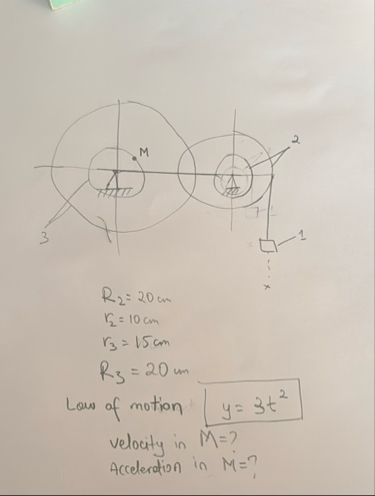 M
2
3
1
x
R2 = 20 cm
r2 = 10 cm
r3 = 15 cm
R3 = 20 cm
Law of motion y = 3t²
velocity in M=?
Acceleration in M=?